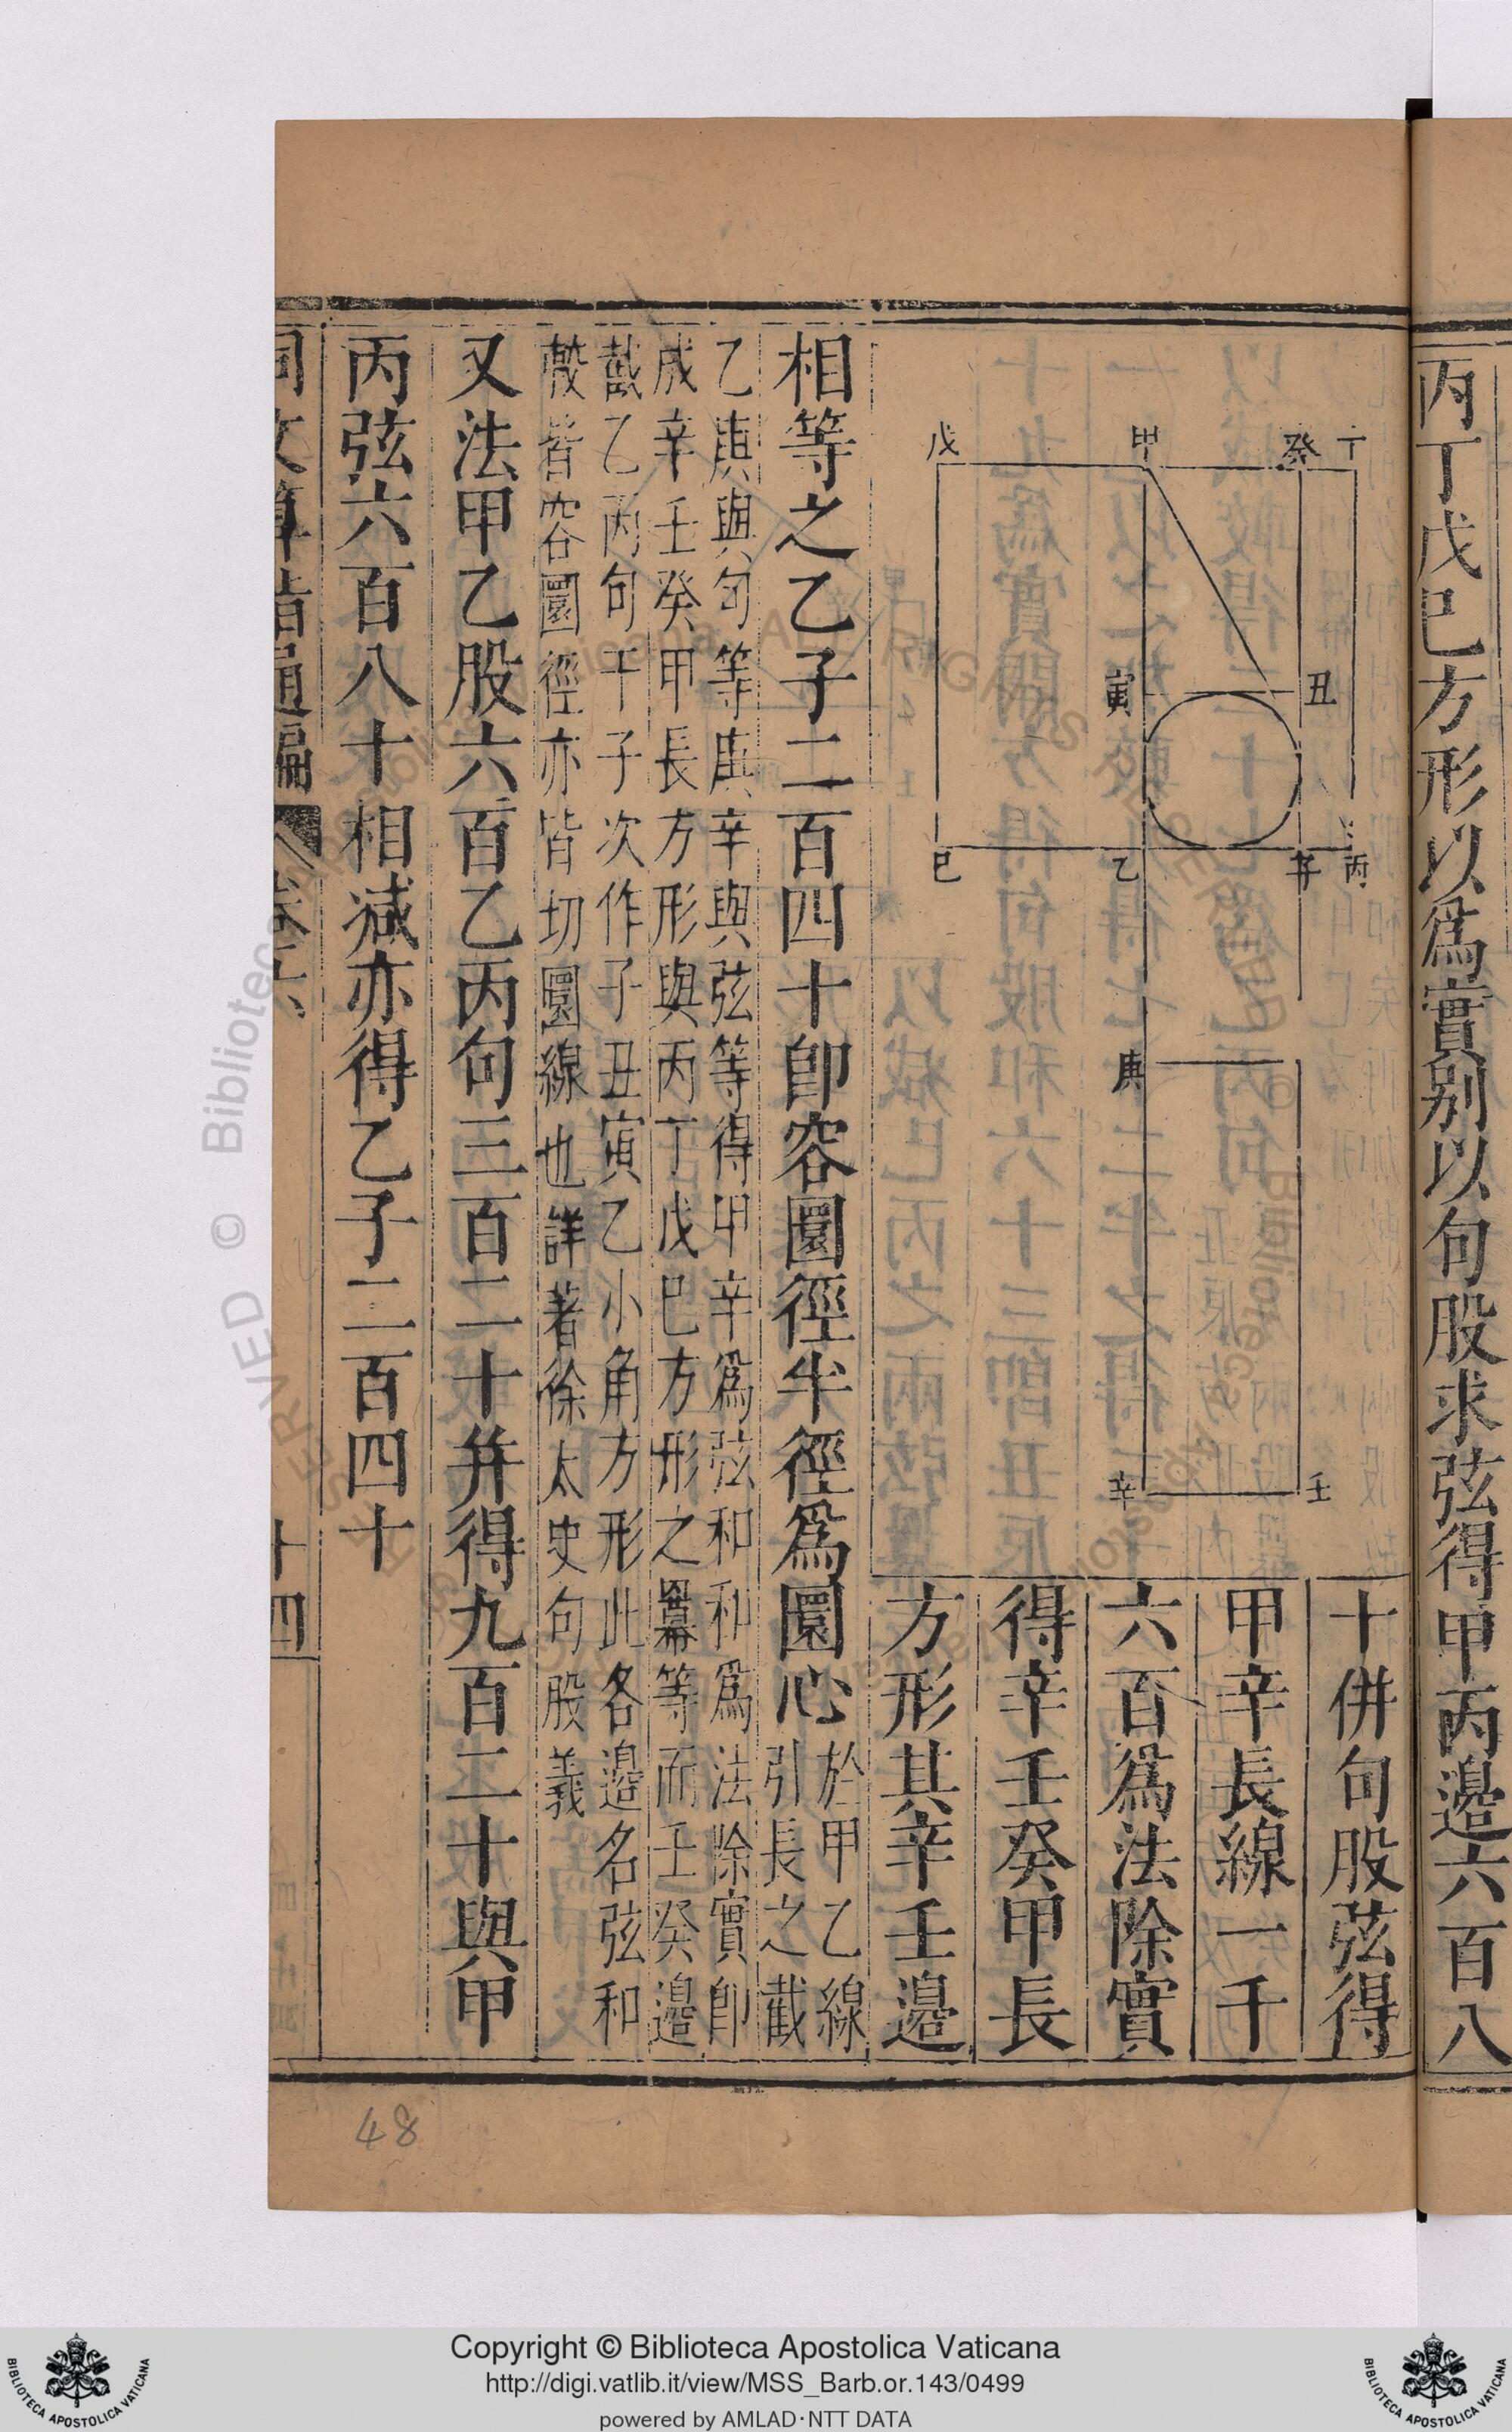 丙丁戊已方形以爲實別以句股求弦得甲丙邊六百八
十併句股弦得
甲辛長線一千
六百爲法除實
得辛壬癸甲長
方形其辛壬邊
丁
癸
甲
戊
丑
寅
丙
辛
乙
已
庚
壬
辛
相等之乙子二百四十卽容圜徑半徑爲圜心
於甲乙線
引長之截
乙庚與句等庚辛與弦等得甲辛爲弦和和爲法除實卽
成辛壬癸甲長方形與丙丁戊巳方形之羃等而壬癸邊
截乙丙句于子次作子丑寅乙小角方形此各邊名弦和
較皆容圜徑亦皆切圜線也詳著徐太史句股義
又法甲乙股六百乙丙句三百二十并得九百二十與甲
丙弦六百八十相減亦得乙子二百四十
同文算指通編
卷六
十四
48
Copyright © Biblioteca Apostolica Vaticana
http://digi.vatlib.it/view/MSS_Barb.or.143/0499
powered by AMLAD·NTT DATA
BIBLIOTECA APOSTOLICA VATICANA
BIBLIOTECA APOSTOLICA VATICANA